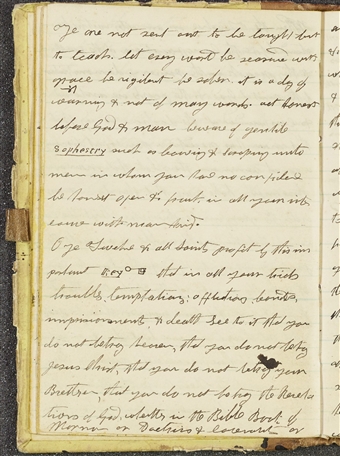 Ye are not sent out to be taught but
to teach. let every word be seasoned with
grace be vigilent be sober. it is a day of
warning & not of many words. act honest
before God & man beware of gentile
sophestry such as bowing & scraping unto
men in whom you have no confidence
be honest open & frank in all your inter
course with mankind.
O ye Twelve & all Saints, profit by this im
portant Key that in all your trials
troubles, temptations, afflictions, bonds,
imprisonments, & death see to it that you
do not betray heaven, that you do not betray
Jesus Christ, that you do not betray your
Brethren, that you do not betray the Revela
tions of God whether in the Bible Book of
Mormon or Doctrins & Covenant or